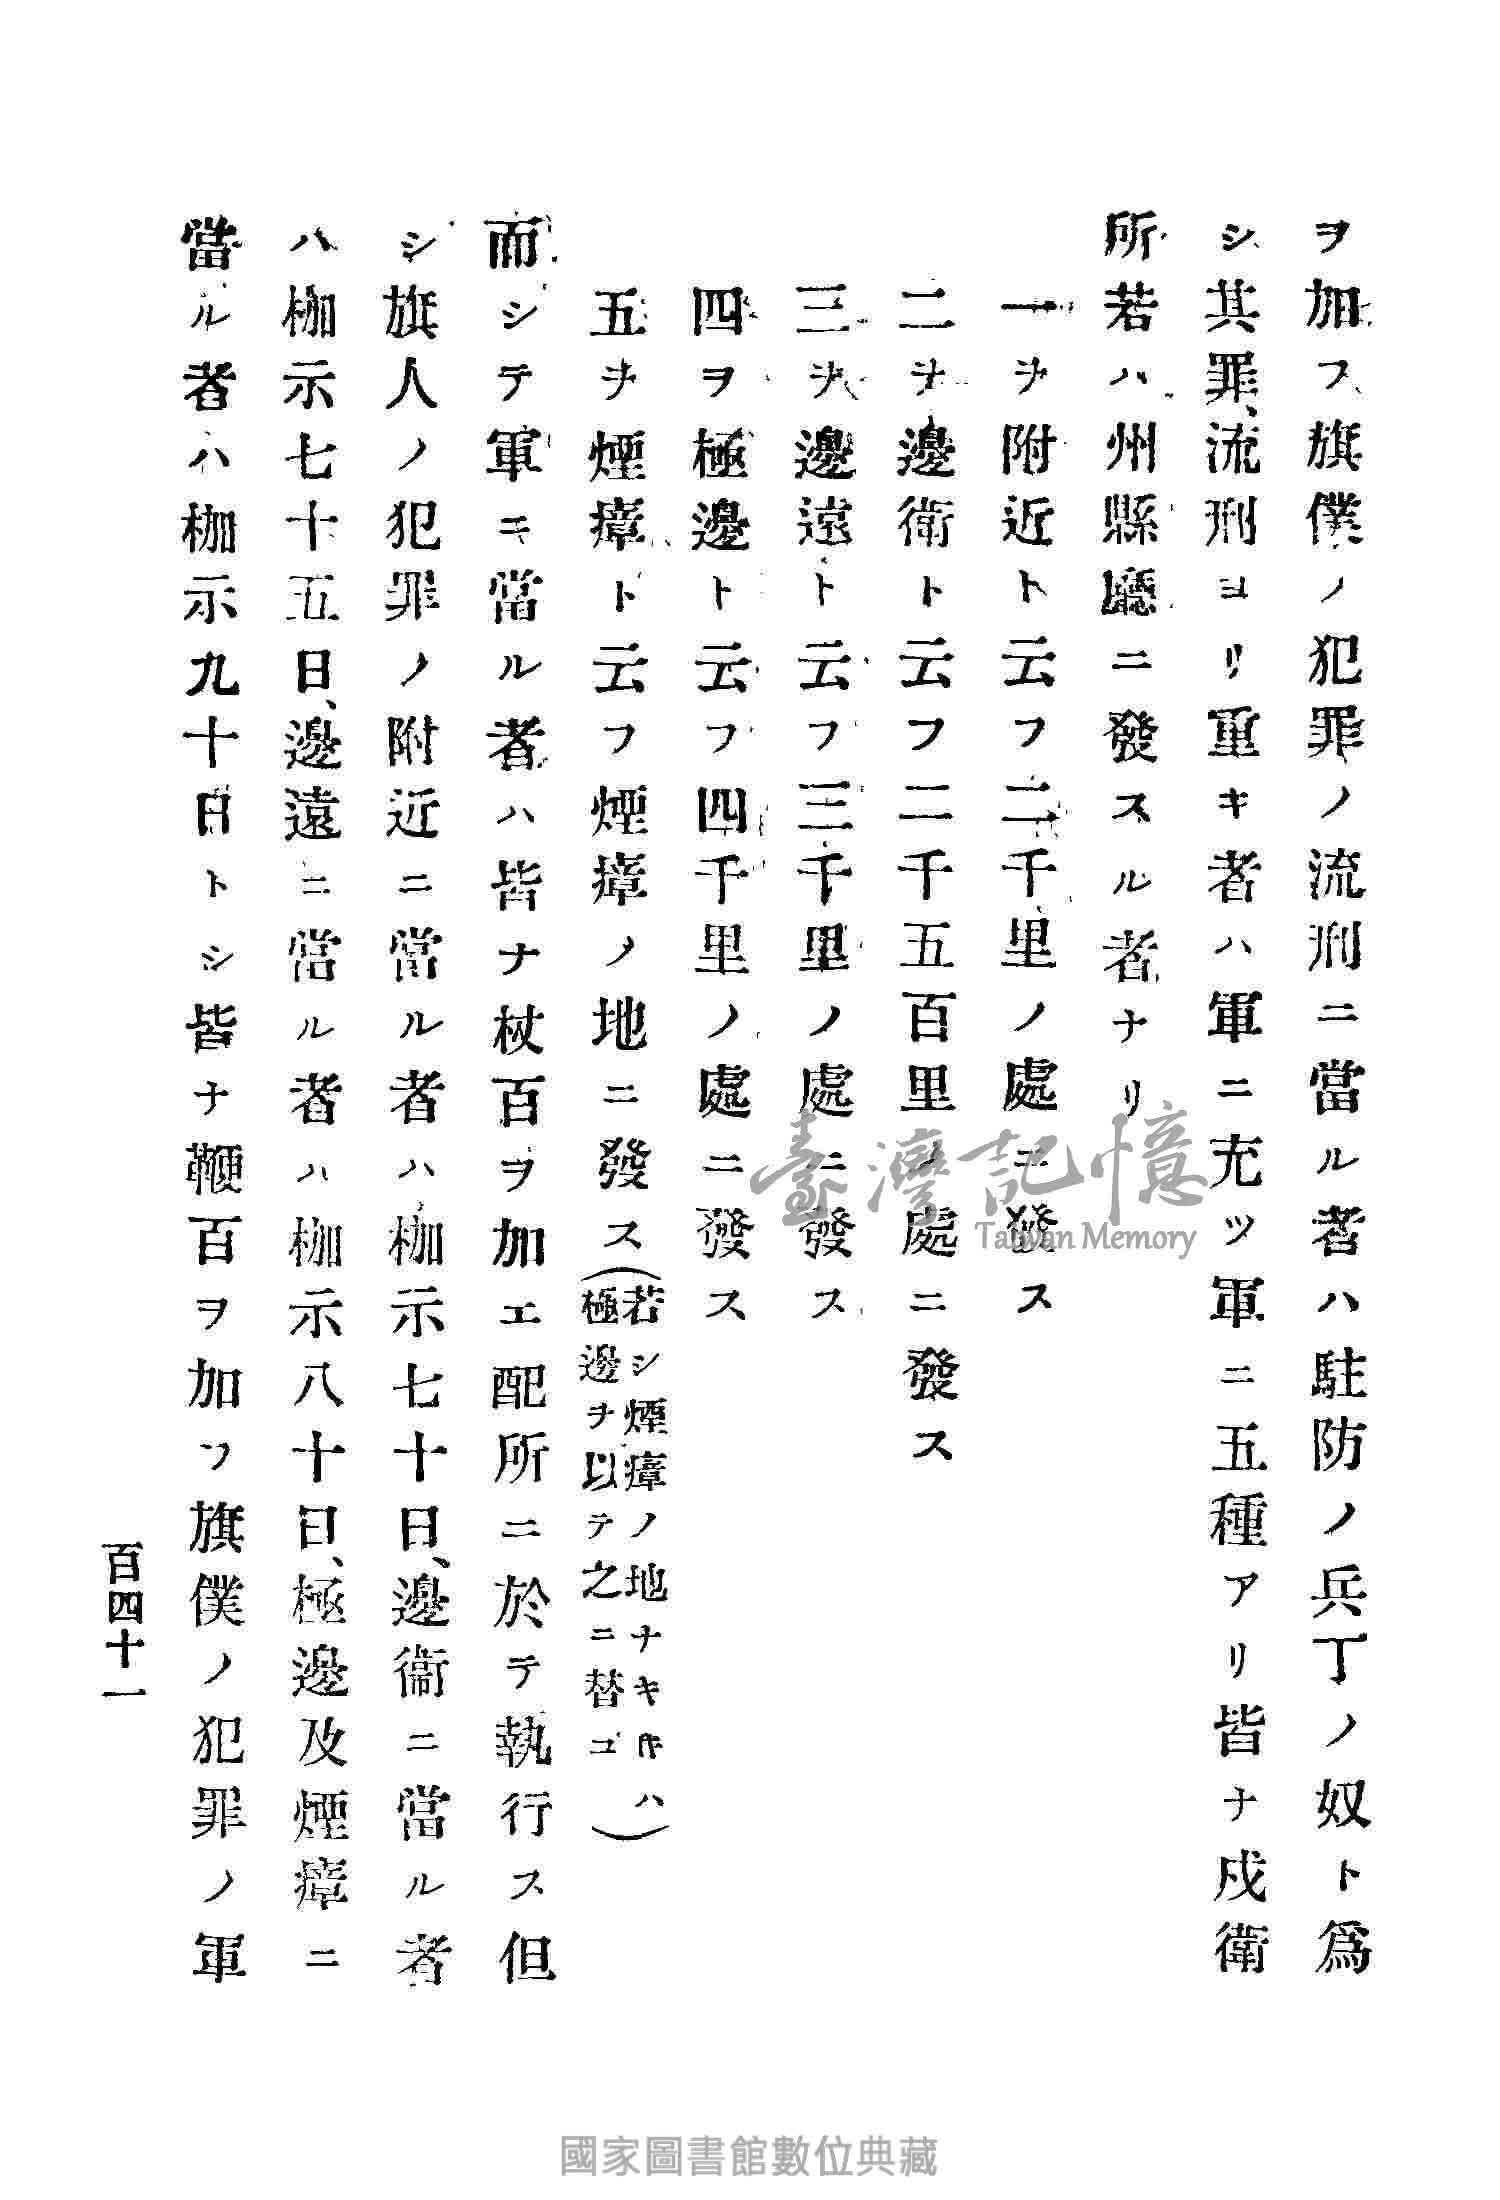 ヲ加フ旗僕ノ犯罪ノ流刑ニ當ル者ハ駐防ノ兵丁ノ奴ト爲
シ其罪、流刑ヨリ重キ者ハ軍ニ充ツ軍ニ五種アリ皆ナ戍衛
所若ハ州縣廳ニ發スル者ナリ
一ヲ附近ト云フ二千里ノ處ニ發ス
二ヲ邊衛ト云フ二千五百里ノ處ニ發ス
三ヲ邊遠ト云フ三千里ノ處ニ發ス
四ヲ極邊ト云フ四千里ノ處ニ發ス
五ヲ煙瘴ト云フ煙瘴ノ地ニ發ス(若シ煙瘴ノ地ナキ時ハ
極邊ヲ以テ之ニ替ユ)
而シテ軍ニ當ル者ハ皆ナ杖百ヲ加エ配所ニ於テ執行ス但
シ旗人ノ犯罪ノ附近ニ當ル者ハ枷示七十日、邊衞ニ當ル者
ハ枷示七十五日、邊遠ニ當ル者ハ枷示八十日、極邊及煙瘴ニ
當ル者ハ枷示九十日トシ皆ナ鞭百ヲ加フ旗僕ノ犯罪ノ軍
百四十一
臺灣記憶
Taiwan Memory
國家圖書館數位典藏